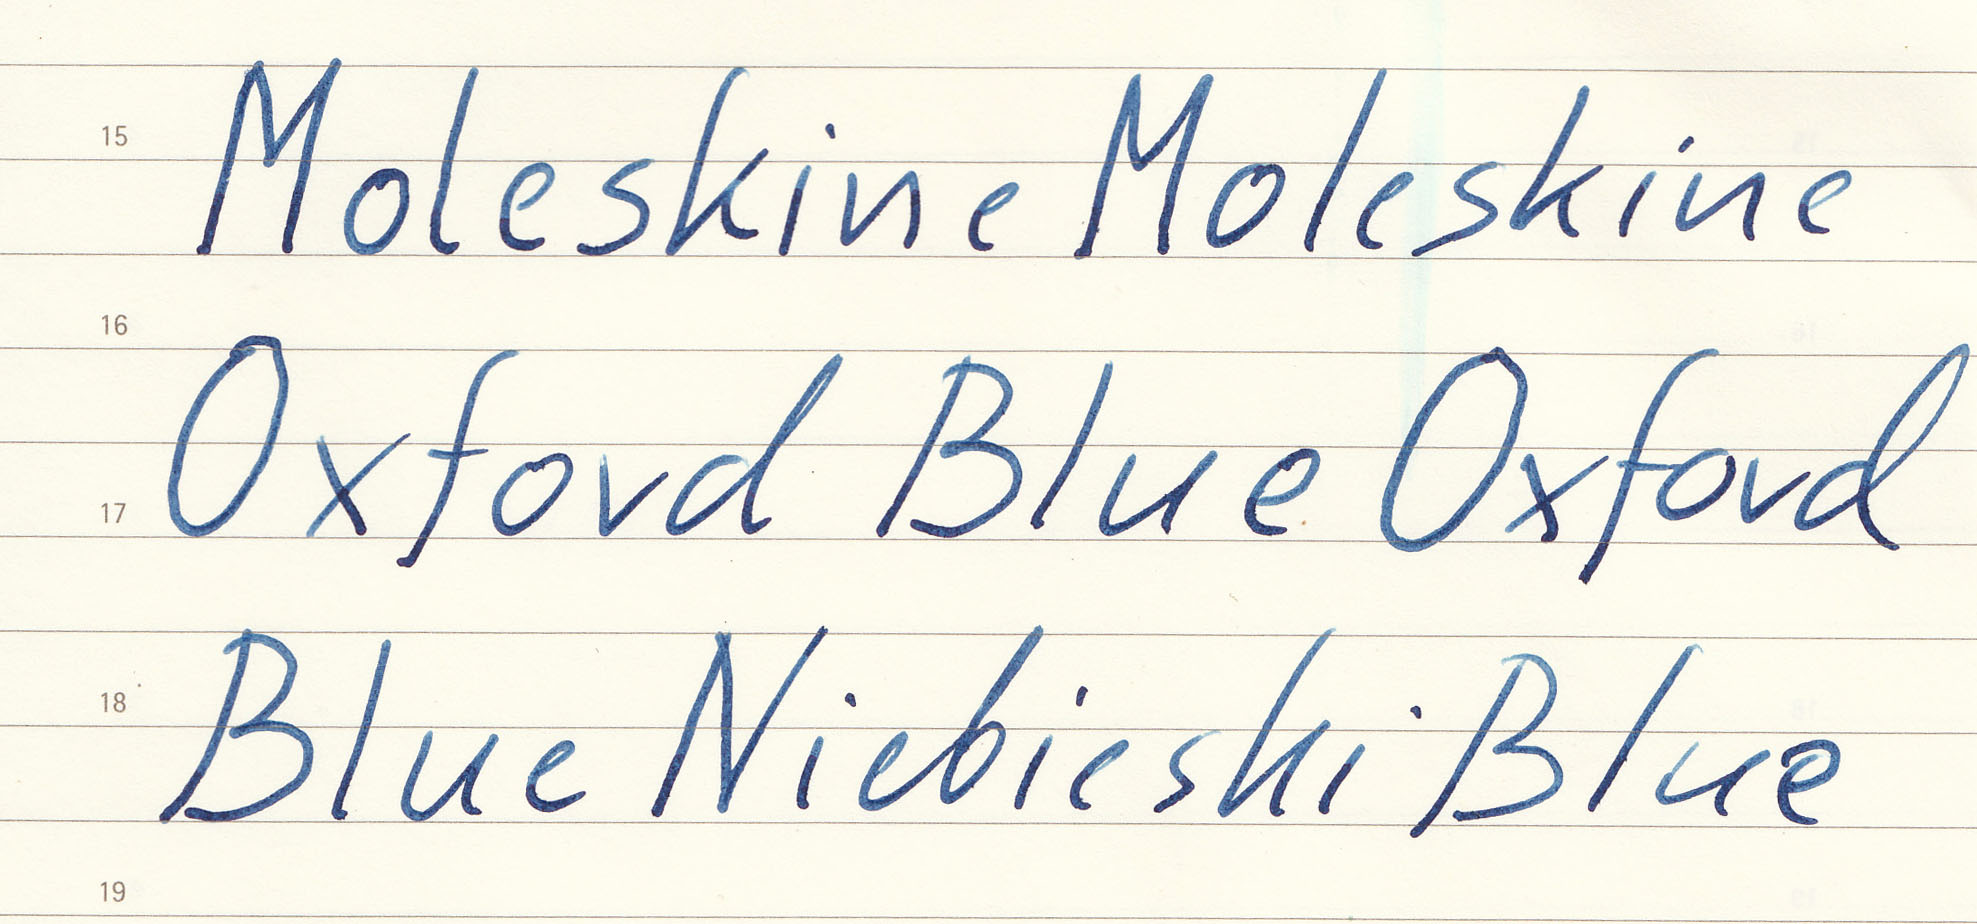 15 Moleskine Moleskine
16
Oxford Blue Oxford
17
18 Blue Niebieski Blue
19